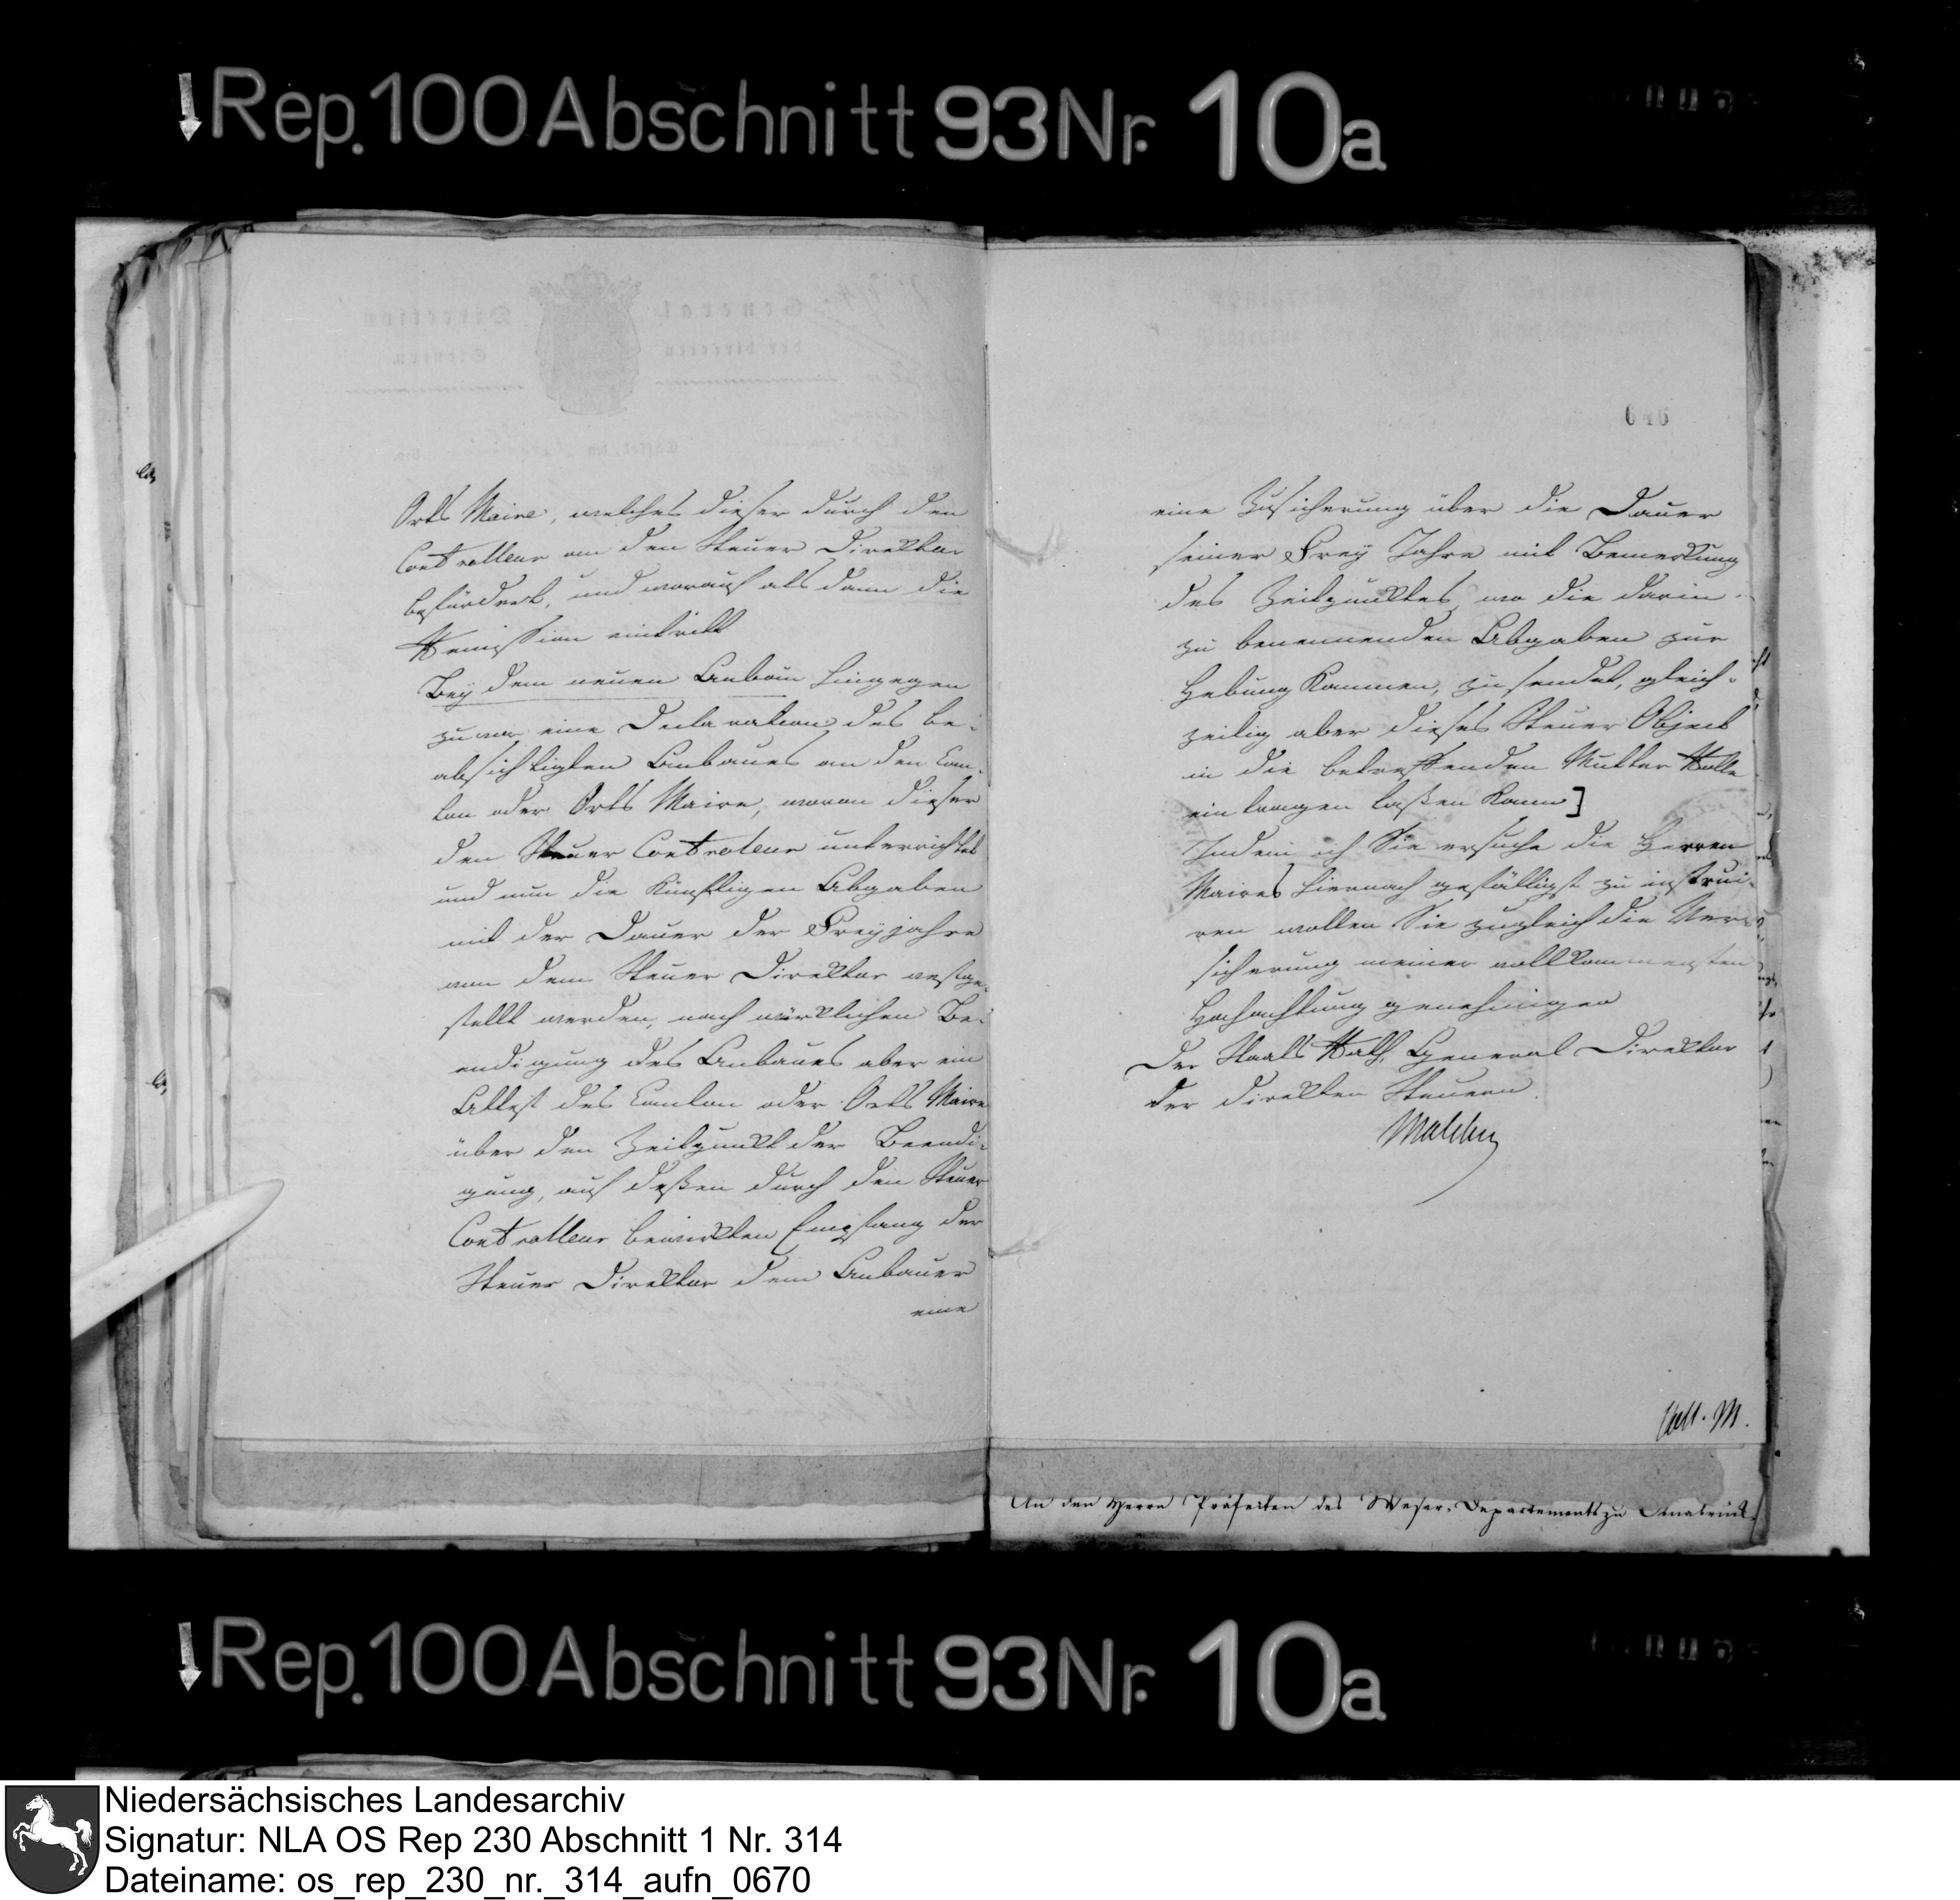 Rep. 100 Abschnitt 93 Nr. 10a
General Direction
der directen Steuern
646
Orts Maire, welches dieser durch den
Controlleur an den Steuer Direktor
befördert, und worauf als dann die
Remission eintritt
Bey dem neuen Anbau hingegen
zuvor eine Declaration des be-
absichtigten Anbaues an den Can-
ton oder Orts Maire, wovon dieser
den Steuer Controleur unterrichtet
und nun die künftigen Abgaben
mit der Dauer der Freyjahre
von dem Steuer Direktor vestge-
stellt werden, nach würklichen Be-
endigung des Anbaues aber ein
Attest des Canton oder Orts Maire
über den Zeitpunkt der Beendi-
gung, auf deßen durch den Steuer
Controlleur bewirkten Empfang der
Steuer Direktor dem Anbauer
eine
eine Zusicherung über die Dauer
seiner Frey Jahre mit Bemerkung
des Zeitpunktes wo die darin
zu benennenden Abgaben zur
Hebung kommen, zu sendet, gleich-
zeitig aber dieses Steuer Object
in die betreffenden Mutter Rolle
ein tragen laßen kann]
Indem ich Sie ersuche die Herren
Maires hiernach gefälligst zu instrui-
ren wollen Sie zugleich die Ver-
sicherung meiner vollkommensten
Hochachtung genehmigen
Der Staats Rath, General Direktor
der direkten Steuern.
Malchus
An den Herrn Präfecten des Weser-Departements zu Osnabrück.
Rep. 100 Abschnitt 93 Nr. 10a
Niedersächsisches Landesarchiv
Signatur: NLA OS Rep 230 Abschnitt 1 Nr. 314
Dateiname: os_rep_230_nr._314_aufn_0670